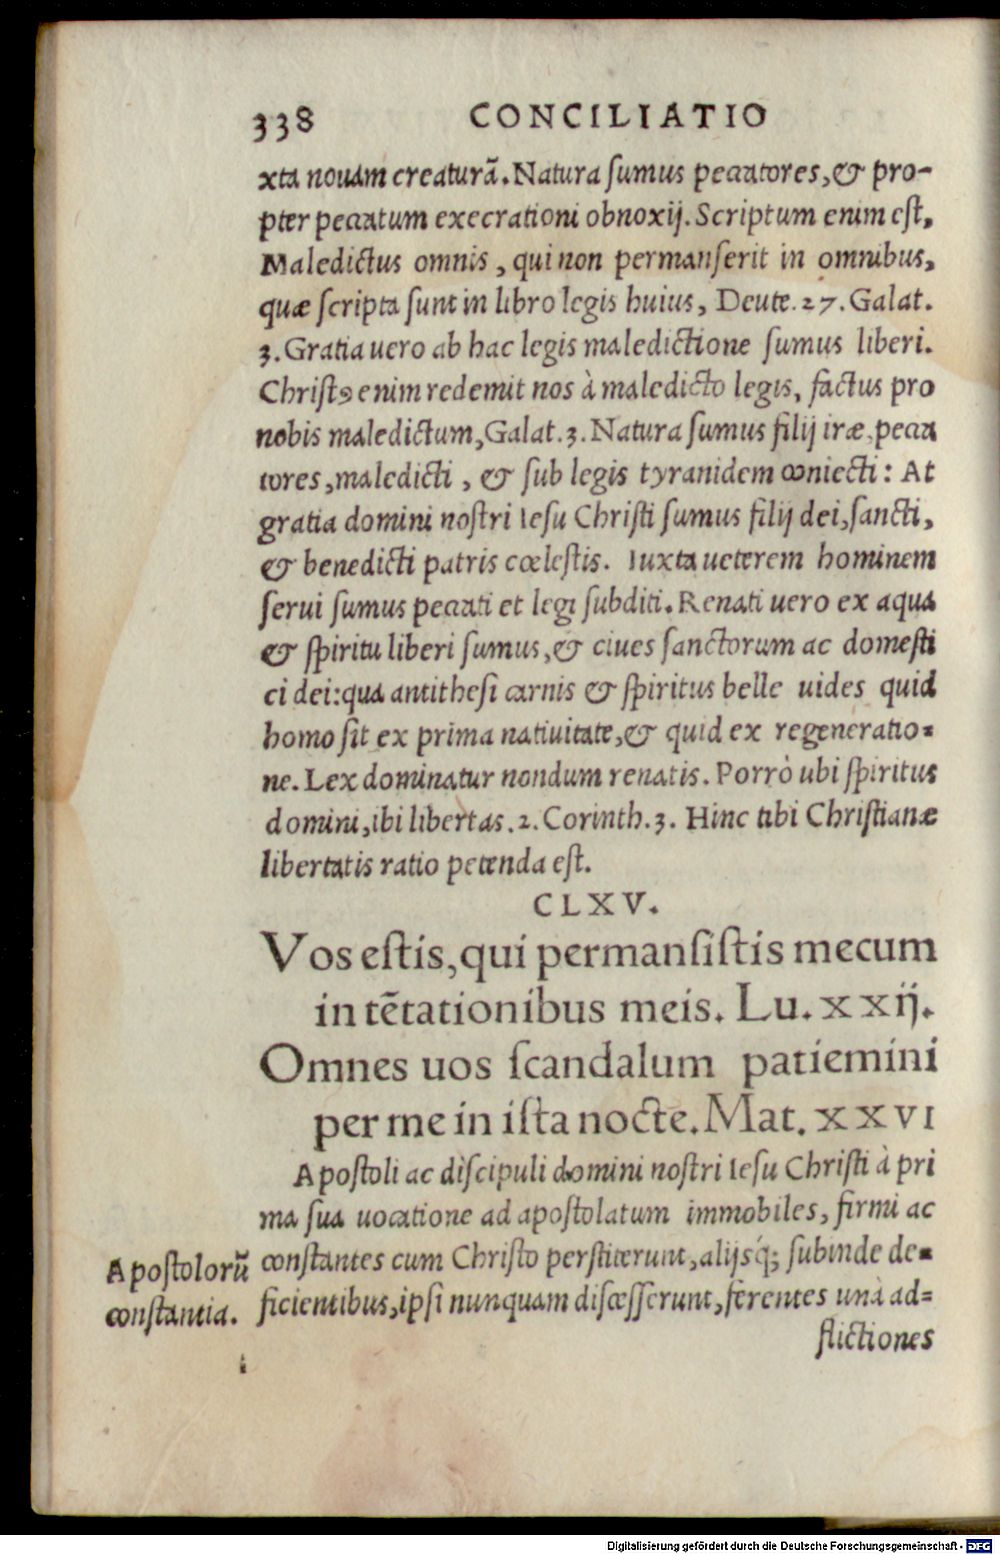 338 CONCILIATIO
xta nouam creaturã. Natura ſumus peccatores, & pro-
pter peccatum execrationi obnoxij. Scriptum enim eſt,
Maledictus omnis, qui non permanſerit in omnibus,
quæ ſcripta ſunt in libro legis huius, Deute. 27. Galat.
3. Gratia uero ab hac legis maledictione ſumus liberi.
Chriſtꝰ enim redemit nos à maledicto legis, factus pro
nobis maledictum, Galat. 3. Natura ſumus filij iræ, pecca
tores, maledicti, & ſub legis tyranidem coniecti: At
gratia domini noſtri Ieſu Chriſti ſumus filij dei, ſancti,
& benedicti patris cœleſtis. Iuxta ueterem hominem
ſerui ſumus peccati et legi ſubditi. Renati uero ex aqua
& ſpiritu liberi ſumus, & ciues ſanctorum ac domeſti
ci dei: qua antitheſi carnis & ſpiritus belle uides quid
homo ſit ex prima natiuitate, & quid ex regeneratio-
ne. Lex dominatur nondum renatis. Porrò ubi ſpiritus
domini, ibi libertas. 2. Corinth. 3. Hinc tibi Chriſtianæ
libertatis ratio petenda eſt.
CLXV.
Vos eſtis, qui permanſiſtis mecum
in tẽtationibus meis. Lu. xxij.
Omnes uos ſcandalum patiemini
per me in iſta nocte. Mat. XXVI
Apoſtoli ac diſcipuli domini noſtri Ieſu Chriſti à pri
ma ſua uocatione ad apoſtolatum immobiles, firmi ac
conſtantes cum Chriſto perſtiterunt, alijsq́; ſubinde de-
ficientibus, ipſi nunquam diſceſſerunt, ferentes unà ad-
flictiones
Apoſtolorũ
conſtantia.
Digitalisierung gefördert durch die Deutsche Forschungsgemeinschaft - DFG